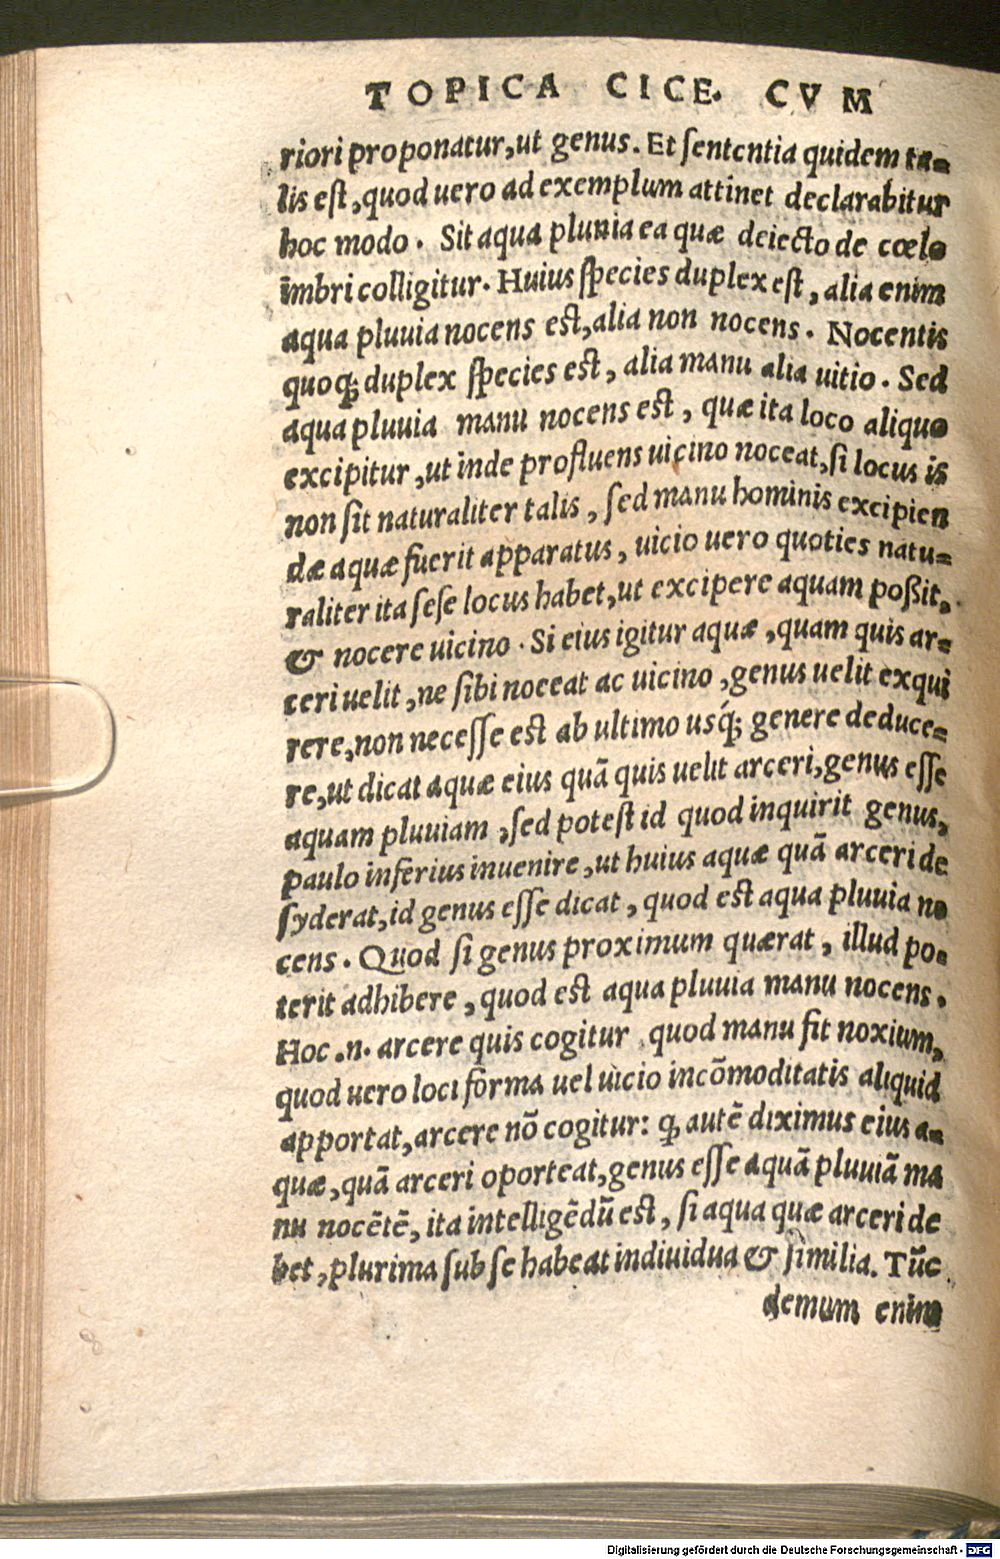 TOPICA CICE. CVM
riori proponatur, ut genus. Et sententia quidem ta-
lis est, quod uero ad exemplum attinet declarabitur
hoc modo. Sit aqua pluuia ea quæ deiecto de cœlo
imbri colligitur. Huius species duplex est, alia enim
aqua pluuia nocens est, alia non nocens. Nocentis
quoq; duplex species est, alia manu alia uitio. Sed
aqua pluuia manu nocens est, quæ ita loco aliquo
excipitur, ut inde profluens uicino noceat, si locus is
non sit naturaliter talis, sed manu hominis excipien
dæ aquæ fuerit apparatus, uicio uero quoties natu-
raliter ita sese locus habet, ut excipere aquam poßit,
& nocere uicino. Si eius igitur aquæ, quam quis ar-
ceri uelit, ne sibi noceat ac uicino, genus uelit exqui
rere, non necesse est ab ultimo usq́; genere deduce-
re, ut dicat aquæ eius quã quis uelit arceri, genus esse
aquam pluuiam, sed potest id quod inquirit genus,
paulo inferius inuenire, ut huius aquæ quã arceri de
syderat, id genus esse dicat, quod est aqua pluuia no
cens. Quod si genus proximum quærat, illud po-
terit adhibere, quod est aqua pluuia manu nocens.
Hoc .n. arcere quis cogitur quod manu fit noxium,
quod uero loci forma uel uicio incõmoditatis aliquid
apportat, arcere nõ cogitur: ꝙ autẽ diximus eius a-
quæ, quã arceri oporteat, genus esse aquã pluuiã ma
nu nocẽtẽ, ita intelligẽdũ est, si aqua quæ arceri de
bet, plurima sub se habeat indiuidua & similia. Tũc
demum enim
Digitalisierung gefördert durch die Deutsche Forschungsgemeinschaft - DFG